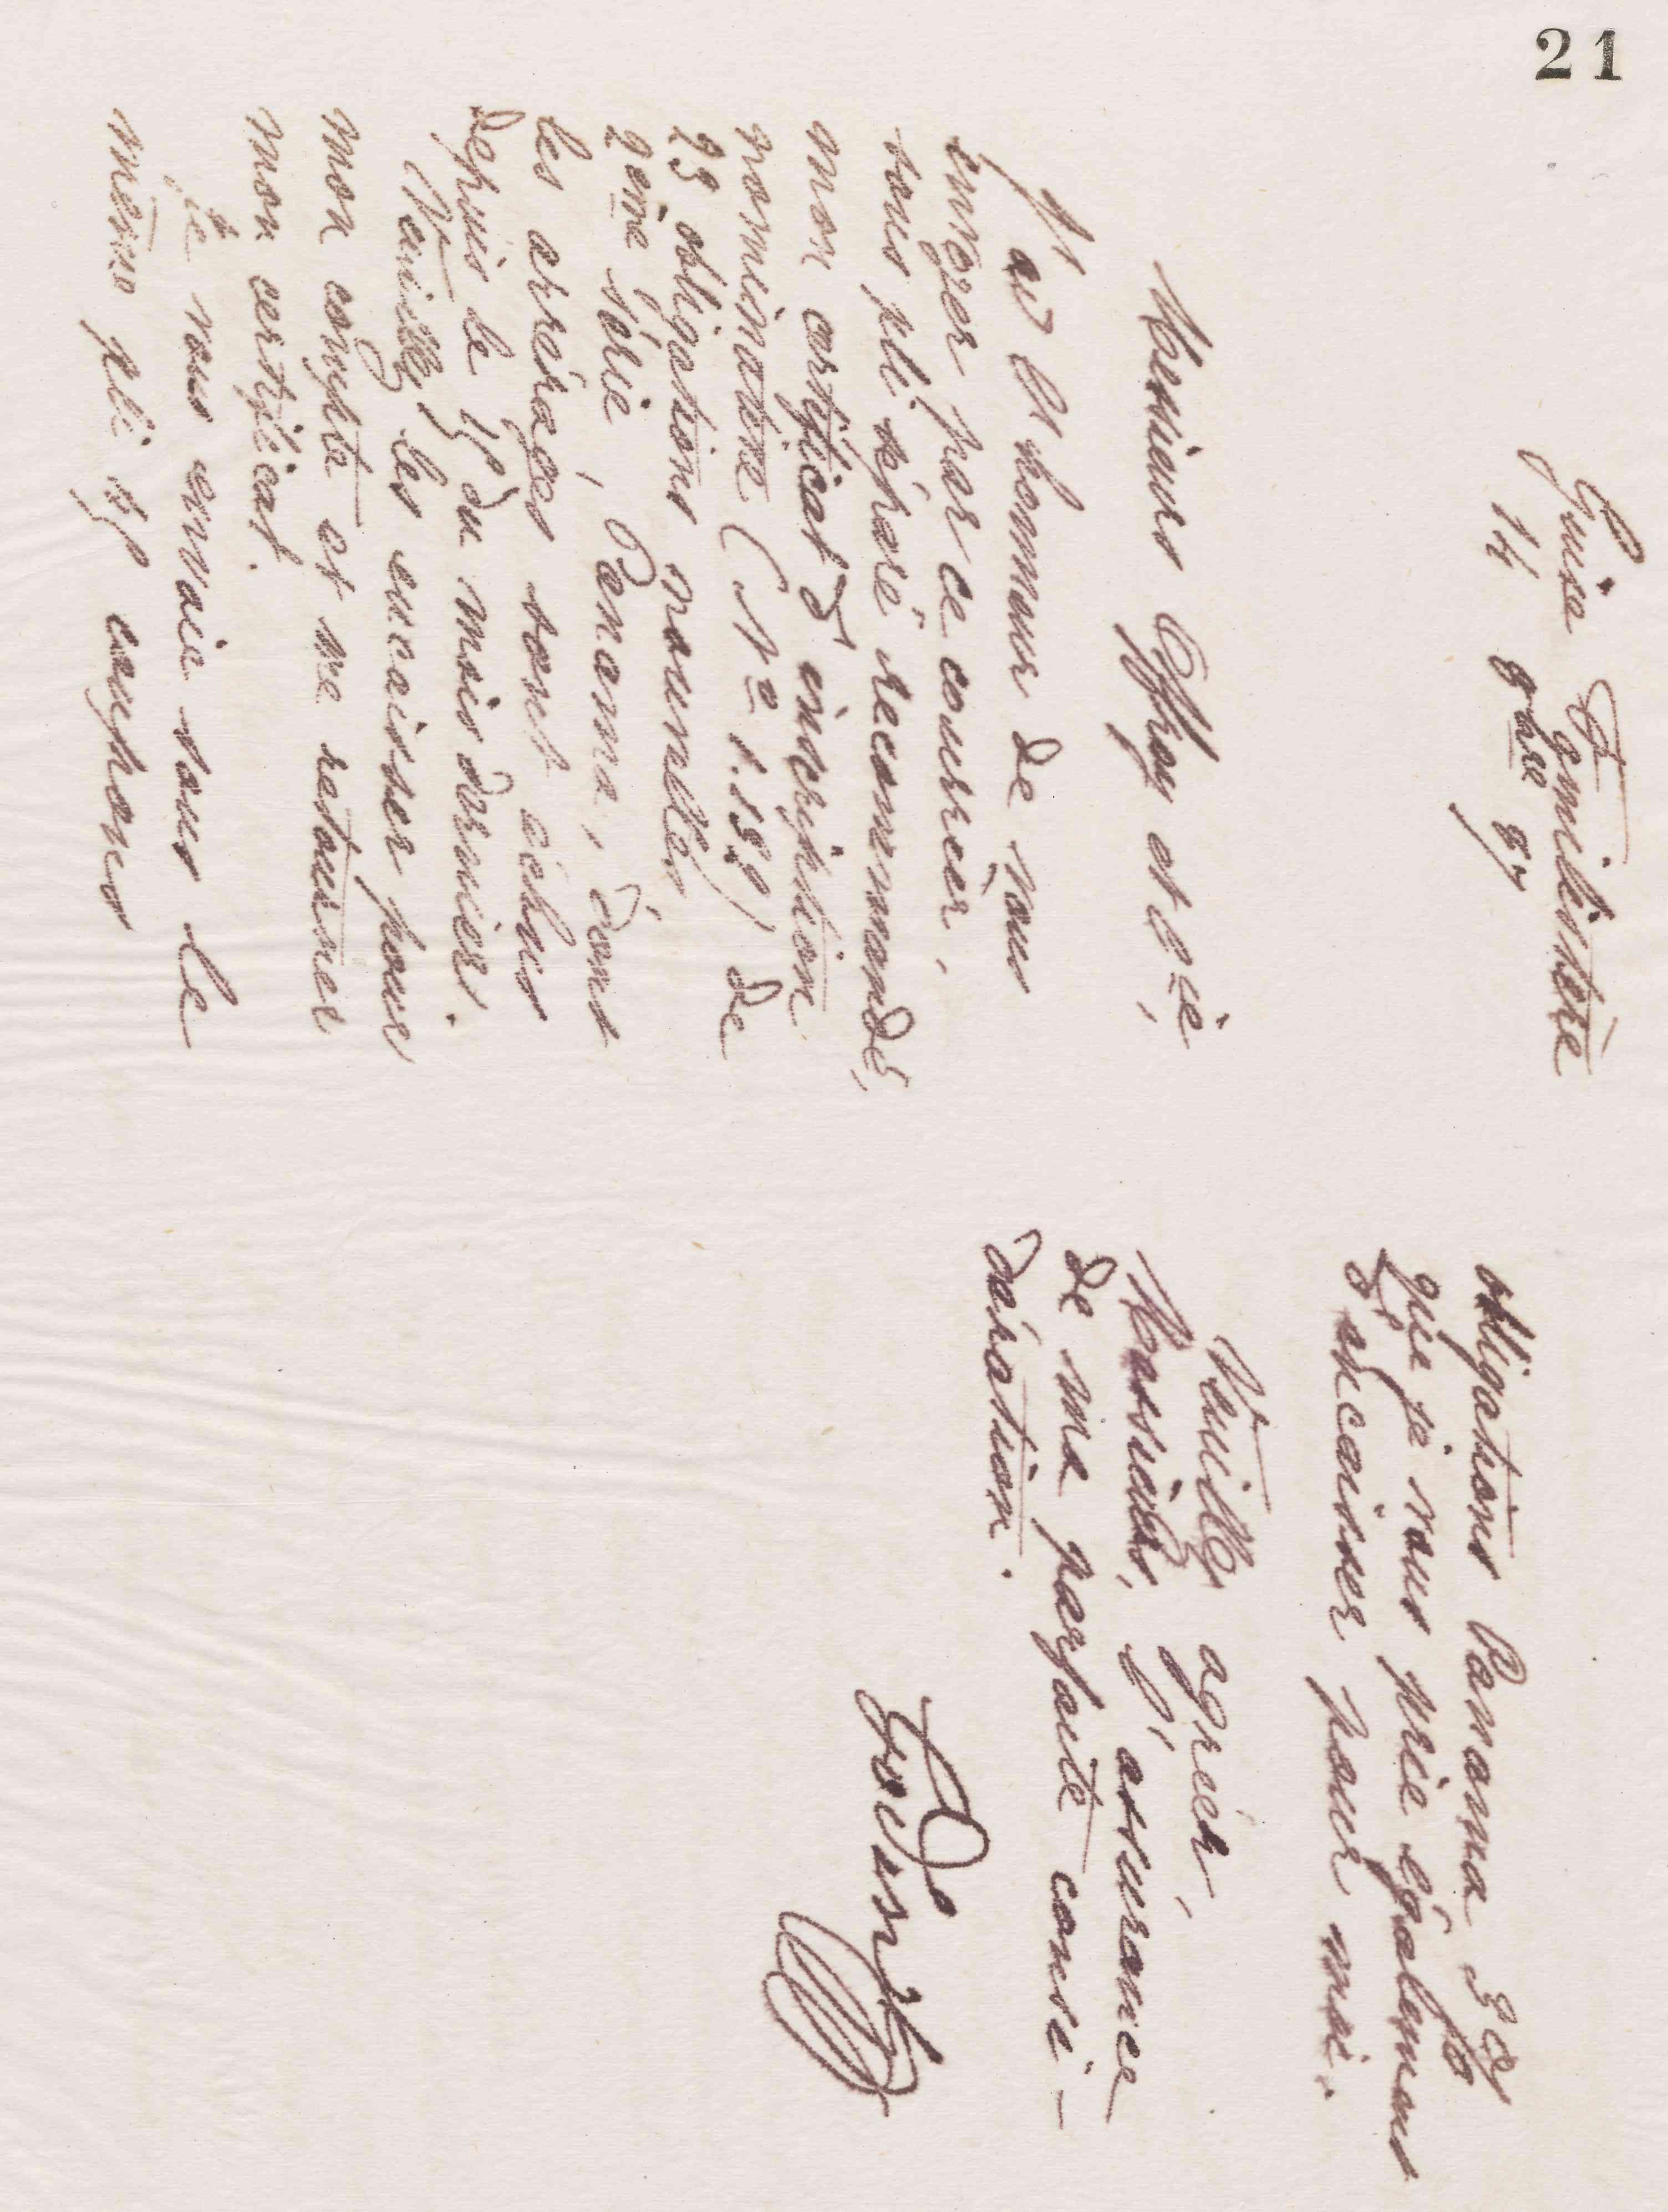 21
Guise Familistère
14 9bre 87
Messieurs Offroy et Cie,
J'ai l'honneur de vous
envoyer par ce courrier,
sous pli séparé recommandé,
mon certificat d'inscription
nominative (No 1.159) de
25 obligations nouvelles
2ème Série, Panama, dont
les arrérages sont échus
depuis le 15 du mois dernier.
Veuillez les encaisser pour
mon compte et me retourner
mon certificat.
Je vous envoie sous le
même pli 45 coupons
obligations Panama 3 %
que je vous prie également
d'encaisser pour moi.
Veuillez agréer,
Messieurs, l'assurance
de ma parfaite consi-
dération.
Godin